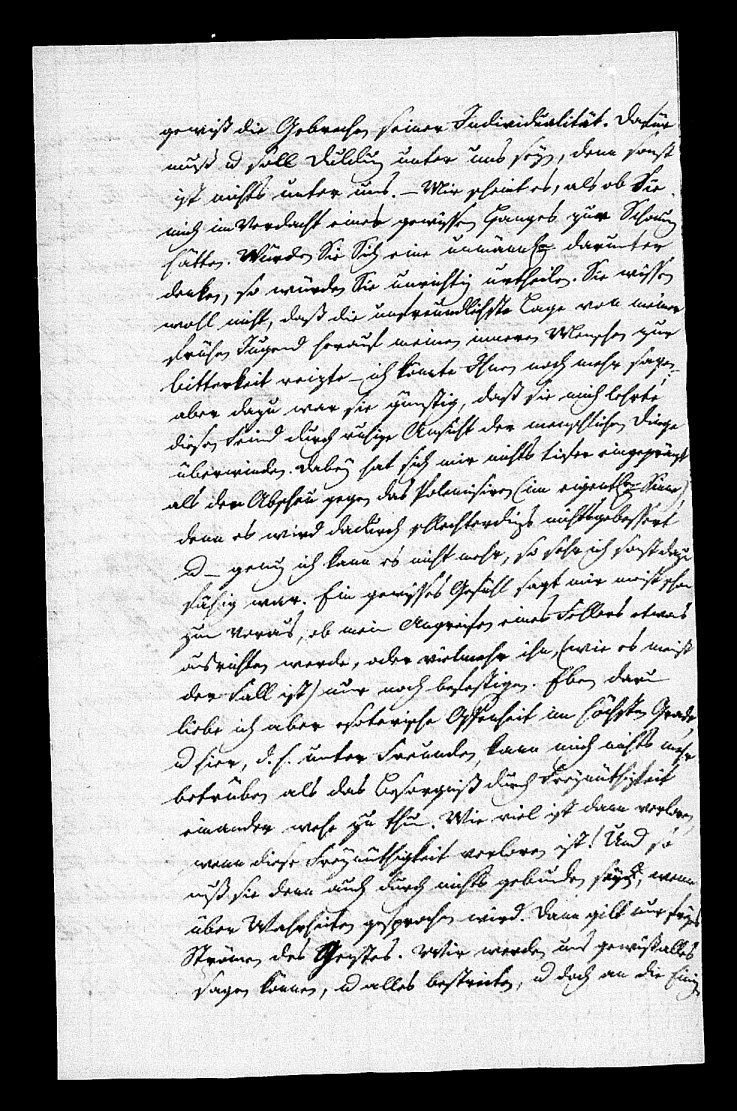 gewiß die Gebrechen seiner Individualität. Dafür
muß u soll Duldung unter uns seyn, denn sonst
ist nichts unter uns. – Mir scheint es, als ob Sie
mich im Verdacht eines gewissen Hanges zur Schonung
hätten. Würden Sie Sich eine unmännl. darunter
denken, so würden Sie unrichtig urtheilen. Sie wissen
wohl nicht, daß die unfreundlichste Lage von meiner
frühen Jugend herauf meinen inneren Menschen zur
bitterkeit reizte – ich könnte Ihnen noch mehr sagen –
aber dazu war sie günstig, daß sie mich lehrte
diesen Feind durch ruhige Ansicht der menschlichen Dinge
überwinden. Dabey hat sich mir nichts tiefer eingeprägt
als der Abscheu gegen das Polemisiren (im eigentl. Sinne)
denn es wird dadurch schlechterdings nichts gebessert
u – genug ich kann es nicht mehr, so sehr ich sonst dazu
fähig war. Ein gewisses Gefühl sagt mir meist schon
zum voraus, ob mein Angreifen eines Fehlers etwas
ausrichten werde, oder vielmehr ihn, (wie es meist
der Fall ist) nur noch befestigen. Eben darum
liebe ich aber esoterische Offenheit im höchsten Grade,
u hier, d. h. unter Freunden, kann mich nichts mehr
betrüben als das Besorgniß durch Freymüthigkeit
einander wehe zu thun. Wie viel ist dann verloren,
wenn diese Freymüthigkeit verloren ist! Und so
muß sie denn auch durch nichts gebunden seyn, wenn
über Wahrheiten gesprochen wird. Dann gilt nur freyes
Strömen des Geistes. Wir werden uns gewiß alles
sagen können, u alles bestreiten, u doch an die Einig